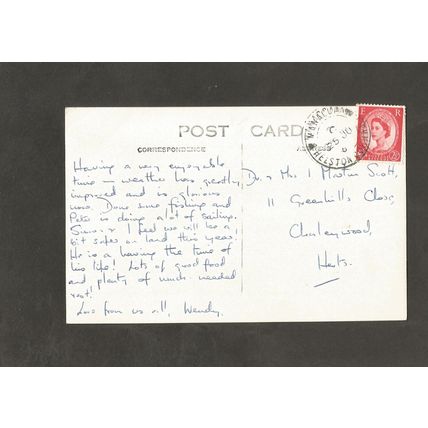 POST CARD
CORRESPONDENCE
Having a very enjoyable
time - weather has greatly
improved and is glorious
now. Done some fishing and
Pete is doing a lot of sailing.
I feel we will be a
bit safer on land this year.
He is a having the time of
his life! Lots of good food
and plenty of much needed
rest!
Love from us all, Wendy.
Dr. & Mrs I Martin Scott,
11 Greenhills Close,
Chorleywood,
Herts.
HELSTON
E R